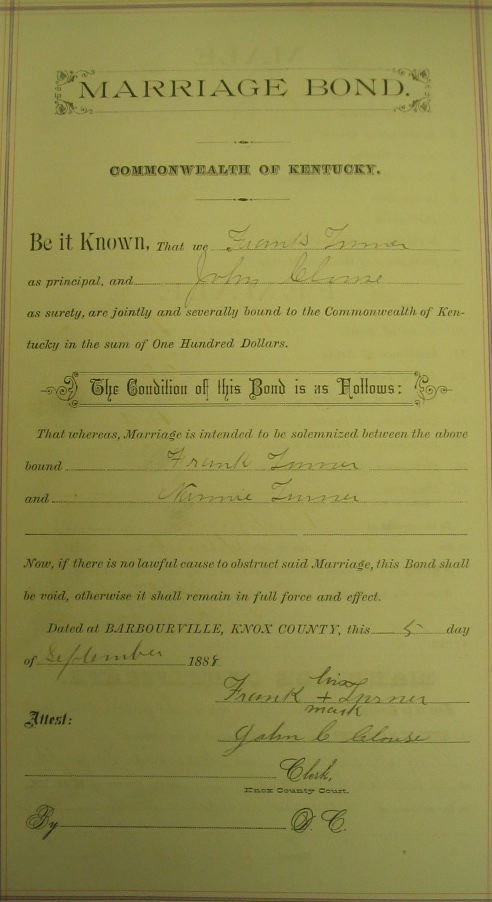 MARRIAGE BOND.
COMMONWEALTH OF KENTUCKY.
Be it Known, That we Frank Turner
as principal, and John Clouse
as surety, are jointly and severally bound to the Commonwealth of Ken-
tucky in the sum of One Hundred Dollars.
The Condition of this Bond is as Follows:
That whereas, Marriage is intended to be solemnized between the above
bound Frank Turner
and Nannie Turner
Now, if there is no lawful cause to obstruct said Marriage, this Bond shall
be void, otherwise it shall remain in full force and effect.
Dated at BARBOURVILLE, KNOX COUNTY, this 5 day
of September 1888
his
Frank + Turner
mark
Attest:
John C Clouse
Clerk,
Knox County Court.
By D. C.